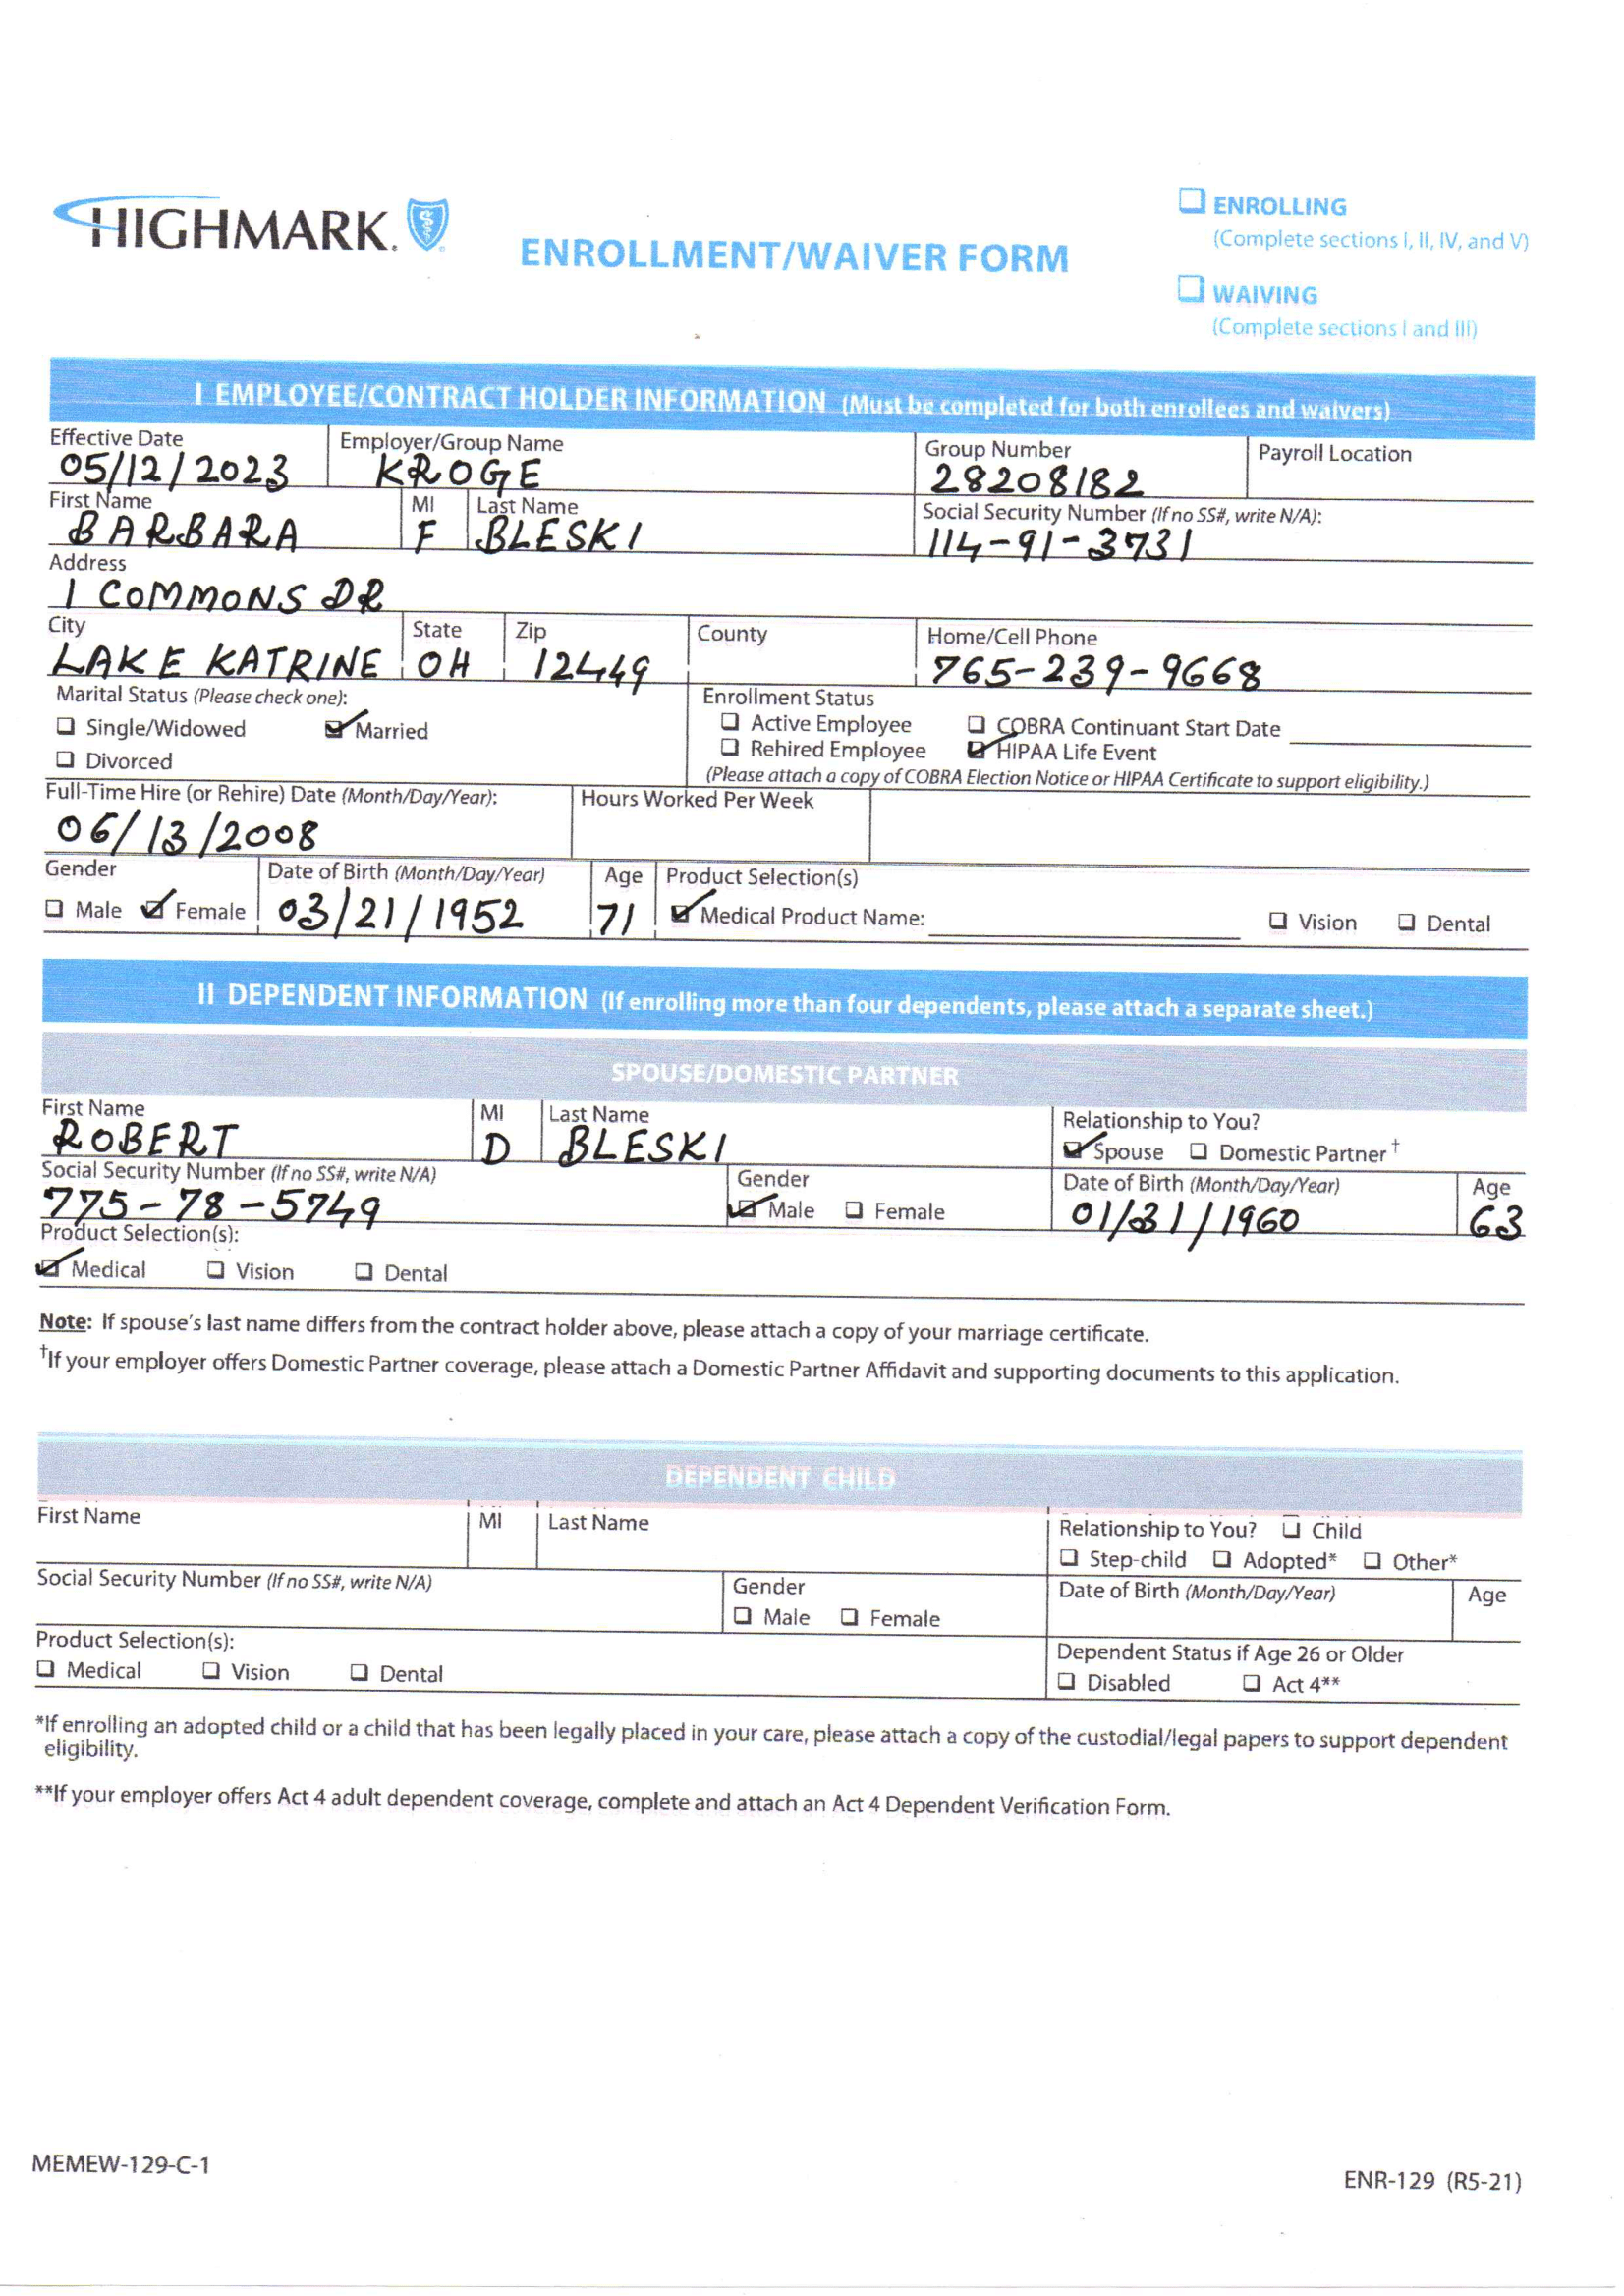 HIGHMARK.
ENROLLMENT/WAIVER FORM
❑ ENROLLING
(Complete sections I, II, IV, and V)
❑ WAIVING
(Complete sections I and III)
I EMPLOYEE/CONTRACT HOLDER INFORMATION (Must be completed for both enrollees and waivers)
Effective Date Employer/Group Name Group Number Payroll Location
05/12/2023 KROGE 28208182
First Name MI Last Name Social Security Number (If no SS#, write N/A):
BARBARA F BLESKI 114-91-3731
Address
1 COMMONS DR
City State Zip County Home/Cell Phone
LAKE KATRINE OH 12449 765-239-9668
Marital Status (Please check one): Enrollment Status
❑ Single/Widowed ☑ Married ❑ Active Employee ❑ COBRA Continuant Start Date
❑ Divorced ❑ Rehired Employee ☑ HIPAA Life Event
(Please attach a copy of COBRA Election Notice or HIPAA Certificate to support eligibility.)
Full-Time Hire (or Rehire) Date (Month/Day/Year): Hours Worked Per Week
06/13/2008
Gender Date of Birth (Month/Day/Year) Age Product Selection(s)
❑ Male ☑ Female 03/21/1952 71 ☑ Medical Product Name: ❑ Vision ❑ Dental
II DEPENDENT INFORMATION (If enrolling more than four dependents, please attach a separate sheet.)
SPOUSE/DOMESTIC PARTNER
First Name MI Last Name Relationship to You?
ROBERT D BLESKI ☑ Spouse ❑ Domestic Partner†
Social Security Number (If no SS#, write N/A) Gender Date of Birth (Month/Day/Year) Age
775-78-5749 ☑ Male ❑ Female 01/31/1960 63
Product Selection(s):
☑ Medical ❑ Vision ❑ Dental
Note: If spouse's last name differs from the contract holder above, please attach a copy of your marriage certificate.
†If your employer offers Domestic Partner coverage, please attach a Domestic Partner Affidavit and supporting documents to this application.
DEPENDENT CHILD
First Name MI Last Name Relationship to You? ❑ Child
❑ Step-child ❑ Adopted* ❑ Other*
Social Security Number (If no SS#, write N/A) Gender Date of Birth (Month/Day/Year) Age
❑ Male ❑ Female
Product Selection(s): Dependent Status if Age 26 or Older
❑ Medical ❑ Vision ❑ Dental ❑ Disabled ❑ Act 4**
*If enrolling an adopted child or a child that has been legally placed in your care, please attach a copy of the custodial/legal papers to support dependent
eligibility.
**If your employer offers Act 4 adult dependent coverage, complete and attach an Act 4 Dependent Verification Form.
MEMEW-129-C-1
ENR-129 (R5-21)